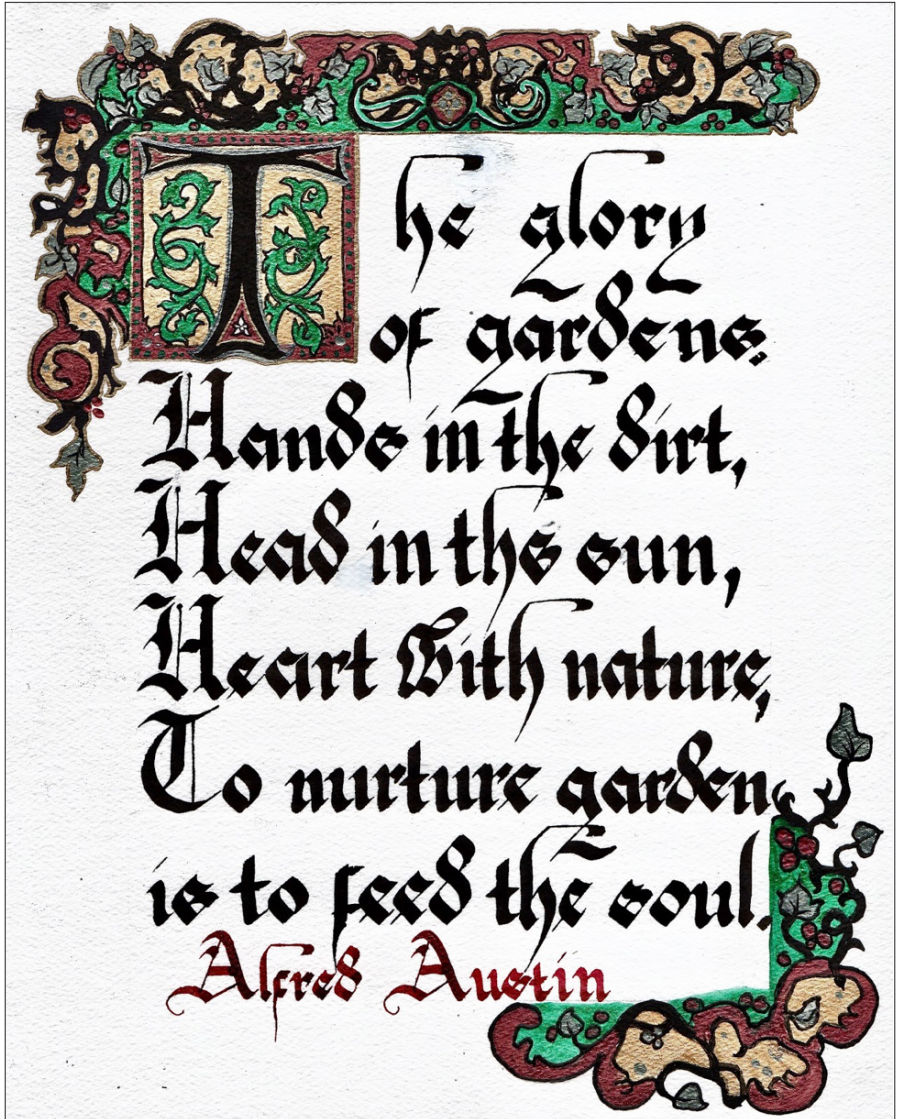 The glory
of gardens:
Hands in the dirt,
Head in the sun,
Heart With nature,
To nurture garden
is to feed the soul.
Alfred Austin